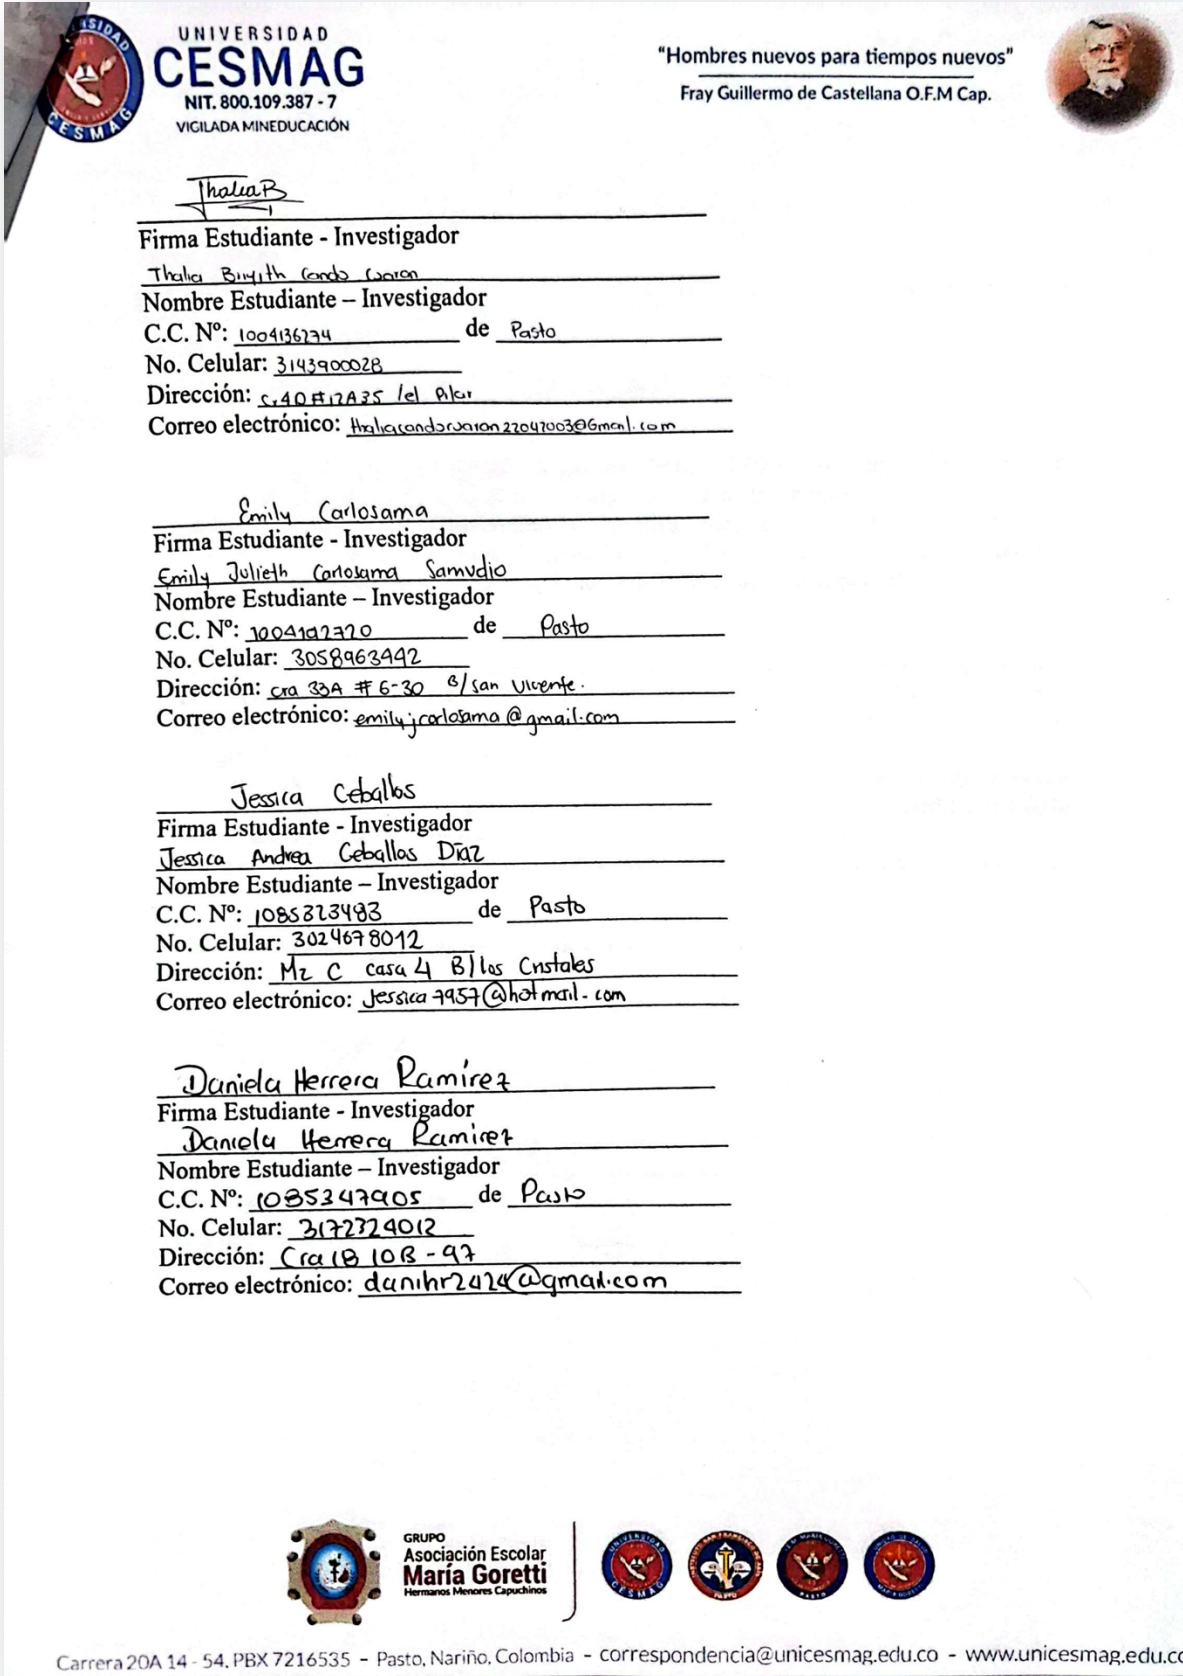 UNIVERSIDAD
CESMAG
NIT. 800.109.387 - 7
VIGILADA MINEDUCACIÓN
"Hombres nuevos para tiempos nuevos"
Fray Guillermo de Castellana O.F.M Cap.
ThaliaB
Firma Estudiante - Investigador
Thalia
Nombre Estudiante – Investigador
C.C. Nº: 1004136274 de Pasto
No. Celular: 3143900028
Dirección: /el Pilar
Correo electrónico:
Emily Carlosama
Firma Estudiante - Investigador
Emily Julieth Carlosama Samudio
Nombre Estudiante – Investigador
C.C. Nº: 1004192720 de Pasto
No. Celular: 3058963442
Dirección: cra 33A # 6-30 B/ San Vicente.
Correo electrónico: emilyjcarlosama@gmail.com
Jessica Ceballos
Firma Estudiante - Investigador
Jessica Andrea Ceballos Díaz
Nombre Estudiante – Investigador
C.C. Nº: 1085323483 de Pasto
No. Celular: 3024678012
Dirección: Mz C casa 4 B/ los Cristales
Correo electrónico: Jessica7957@hotmail.com
Daniela Herrera Ramírez
Firma Estudiante - Investigador
Daniela Herrera Ramirez
Nombre Estudiante – Investigador
C.C. Nº: 1085347905 de Pasto
No. Celular: 3172324012
Dirección: Cra 1B 10B - 97
Correo electrónico: danihr2424@gmail.com
GRUPO
Asociación Escolar
María Goretti
Hermanos Menores Capuchinos
Carrera 20A 14 - 54, PBX 7216535 - Pasto, Nariño, Colombia - correspondencia@unicesmag.edu.co - www.unicesmag.edu.co